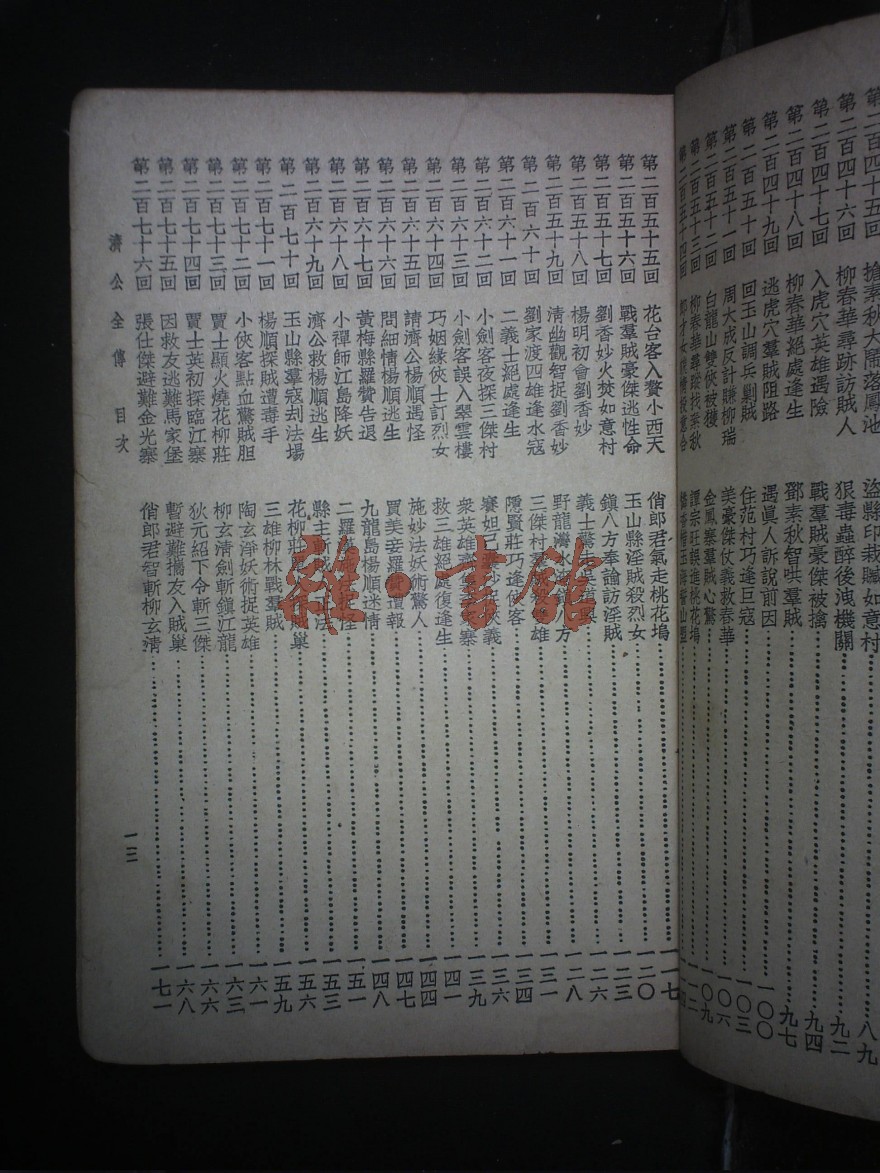 第二百四十五回 搶素秋大鬧落鳳池 盜縣印栽贓如意村 八九
第二百四十六回 柳春華尋跡訪賊人 狠毒蟲醉後洩機關 九二
第二百四十七回 入虎穴英雄遇險 戰羣賊豪傑被擒 九四
第二百四十八回 柳春華絕處逢生 鄧素秋智哄羣賊 九七
第二百四十九回 逃虎穴羣賊阻路 遇眞人訴說前因 一〇〇
第二百五十回 回玉山調兵剿賊 住范村巧逢巨寇 一〇三
第二百五十一回 周大成反計賺柳瑞 美豪傑仗義救春華 一〇六
第二百五十二回 白龍山雙俠被獲 金鳳寨羣賊心驚 一〇九
第二百五十三回 柳春華尋蹤找素秋 譚宗旺誤進桃花塢
第二百五十四回
第二百五十五回 花台客入贅小西天 俏郎君氣走桃花塢 一一七
第二百五十六回 戰羣賊豪傑逃性命 玉山縣淫賊殺烈女 一二〇
第二百五十七回 劉香妙火焚如意村 鎭八方奉諭訪淫賊 一二三
第二百五十八回 楊明初會劉香妙 義士驚走 一二六
第二百五十九回 淸幽觀智捉劉香妙 野龍灣水 方 一二八
第二百六十回 劉家渡四雄逢水寇 三傑村 雄 一三一
第二百六十一回 二義士絕處逢生 隱賢莊巧逢俠客 一三四
第二百六十二回 小劍客夜探三傑村 賽妲己 俠義 一三六
第二百六十三回 小劍客誤入翠雲樓 衆英雄 寨 一三九
第二百六十四回 巧姻緣俠士訂烈女 救三雄絕處復逢生 一四一
第二百六十五回 請濟公楊順遇怪 施妙法妖術驚人 一四四
第二百六十六回 問細情楊順逃生 買美妾羅 遭報 一四七
第二百六十七回 黃梅縣羅贊告退 九龍島楊順迷情 一四八
第二百六十八回 小禪師江島降妖 二羅 怪 一五一
第二百六十九回 濟公救楊順逃生 縣主 法 一五三
第二百七十回 玉山縣羣寇刦法場 花柳莊 賊巢 一五六
第二百七十一回 楊順探賊遭毒手 三雄柳林戰羣賊 一五九
第二百七十二回 小俠客點血驚賊胆 陶玄淨妖術捉英雄 一六一
第二百七十三回 賈士顯火燒花柳莊 柳玄淸劍斬鎭江龍 一六三
第二百七十四回 賈士英初探臨江寨 狄元紹下令斬三傑 一六六
第二百七十五回 因救友逃難馬家堡 暫避難攜友入賊巢 一六八
第二百七十六回 張仕傑避難金光寨 俏郎君智斬柳玄淸 一七一
濟公全傳 目次
一二
雜·書館